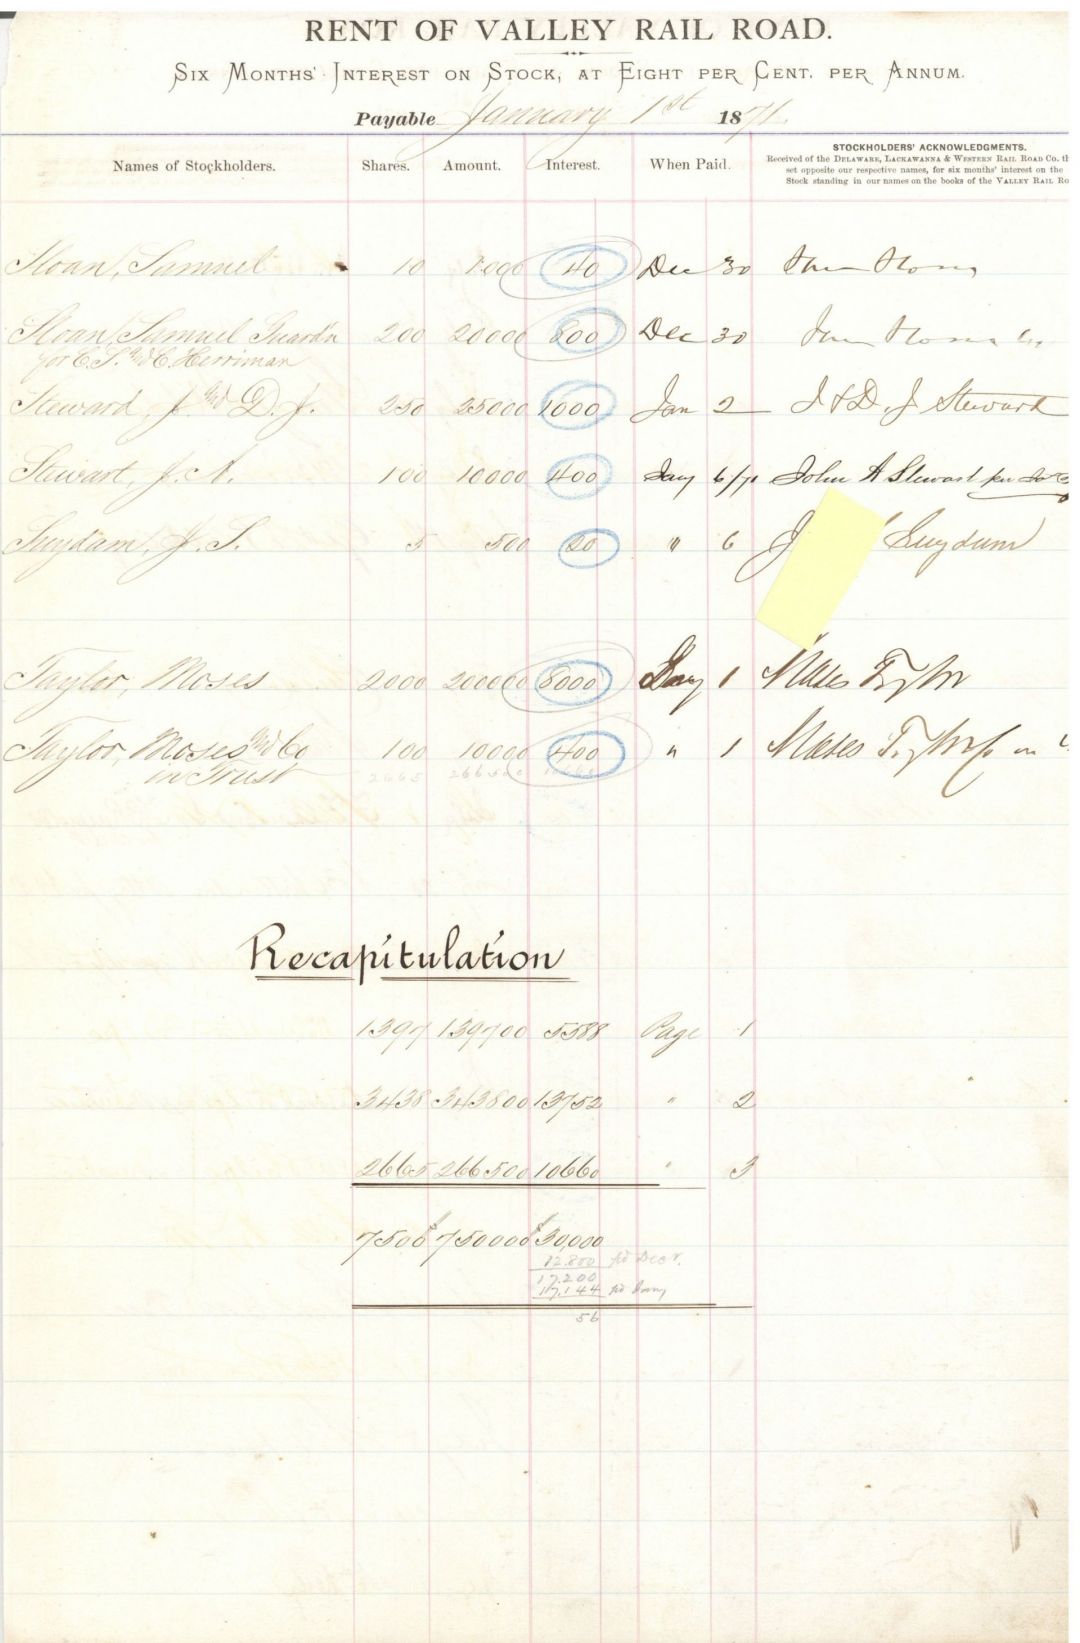 RENT OF VALLEY RAIL ROAD.
SIX MONTHS' INTEREST ON STOCK, AT EIGHT PER CENT. PER ANNUM.
Payable January 1st 1871.
Names of Stockholders. Shares. Amount. Interest. When Paid.
STOCKHOLDERS' ACKNOWLEDGMENTS.
Received of the DELAWARE, LACKAWANNA & WESTERN RAIL ROAD Co. th
set opposite our respective names, for six months' interest on the
Stock standing in our names on the books of the VALLEY RAIL RO
Sloan, Samuel 10 1000 40 Dec 30 Sam Sloan
Sloan, Samuel Guardn 200 20000 800 Dec 30 Sam Sloan
for C. S. and C. Herriman
Steward, J. and D. J. 250 25000 1000 Jan 2 J & D. J Steward
Stewart, J. A. 100 10000 400 Jany 6/71 John A Stewart per
Suydam, J. S. 5 500 20 " 6 J Suydam
Taylor, Moses 2000 200000 8000 Jany 1 Moses Taylor
Taylor, Moses and Co 100 10000 400 " 1 Moses Taylor Co in
in Trust 2665 266500 10660
Recapitulation
1397 139700 5588 Page 1
3438 343800 13752 " 2
2665 266500 10660 " 3
7500 $750000 $30,000
12.800 pd Decr.
17.200
17,144 pd Jany
56